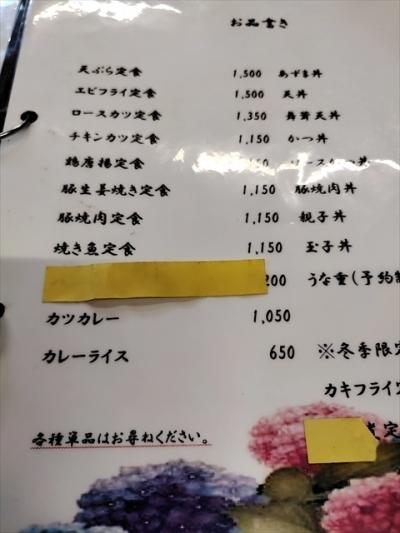 お品書き
天ぷら定食 1,500 あずま丼
エビフライ定食 1,500 天丼
ロースカツ定食 1,350 舞茸天丼
チキンカツ定食 1,150 かつ丼
鶏唐揚定食 ソースかつ丼
豚生姜焼き定食 1,150 豚焼肉丼
豚焼肉定食 1,150 親子丼
焼き魚定食 1,150 玉子丼
200 うな重(予約制
カツカレー 1,050
カレーライス 650 ※冬季限定
カキフライ定
定
各種単品はお尋ねください。